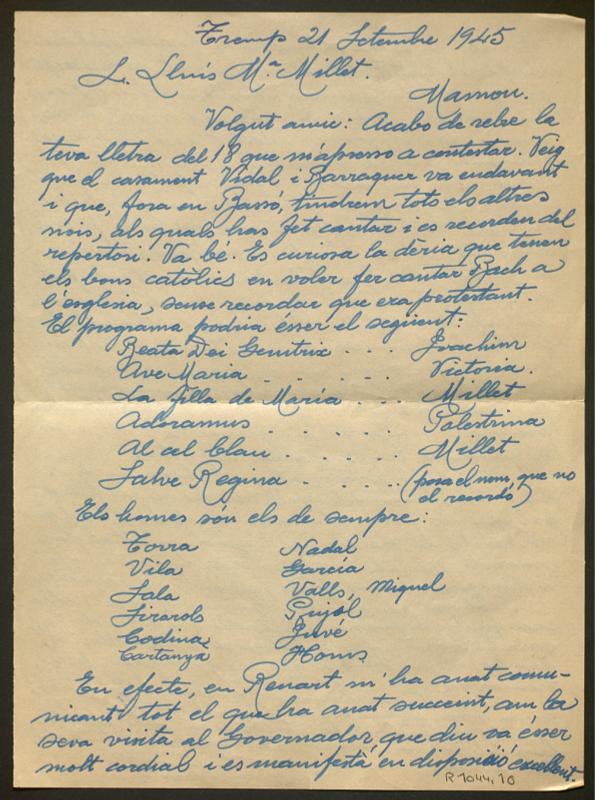 Tremp 21 Setembre 1945
S. Lluís Mª Millet.
Masnou.
Volgut amic: Acabo de rebre la
teva lletra del 18 que m'apresso a contestar. Veig
que el casament Vidal i Barraquer va endavant
i que, fora en Bassó, tindrem tots els altres
nois, als quals has fet cantar i es recorden del
repertori. Va bé. Es curiosa la dèria que tenen
els bons catòlics en voler fer cantar Bach a
l'esglesia, sense recordar que era protestant.
El programa podria ésser el següent:
Beata Dei Genitrix . . . Joachim
Ave Maria . . . . . . Victoria.
La filla de Maria . . . Millet
Adoramus . . . . . Palestrina
Al cel blau . . . . . Millet
Salve Regina . . . . (posa el nom, que no
el recordo)
Els homes són els de sempre:
Torra Nadal
Vila García
Sala Valls, Miquel
Sirarols Pujol
Codina Juvé
Cartanyà Homs
En efecte, en Renart m'ha anat comu-
nicant tot el que ha anat succeint, am la
seva visita al Governador que diu va ésser
molt cordial i es manifestà en disposició excellent.
R 1044,10